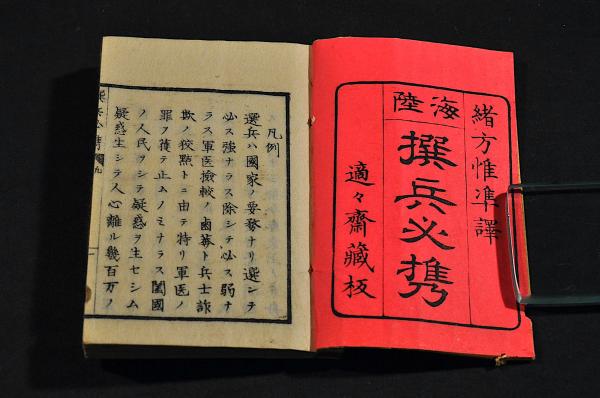 緒方惟準譯
海陸
撰兵必携
適々齋藏板
凡例
選兵ハ國家ノ要務ナリ選ンテ
必ス強ナラス除シテ必ス弱ナ
ラス軍医撿較ノ鹵莾ト兵士詐
欺ノ狡黠トニ由テ特リ軍医ノ
罪ヲ獲テ止ムノミナラス闔國
ノ人民ヲシテ疑惑ヲ生セシム
疑惑生シテ人心離ル幾百万ノ